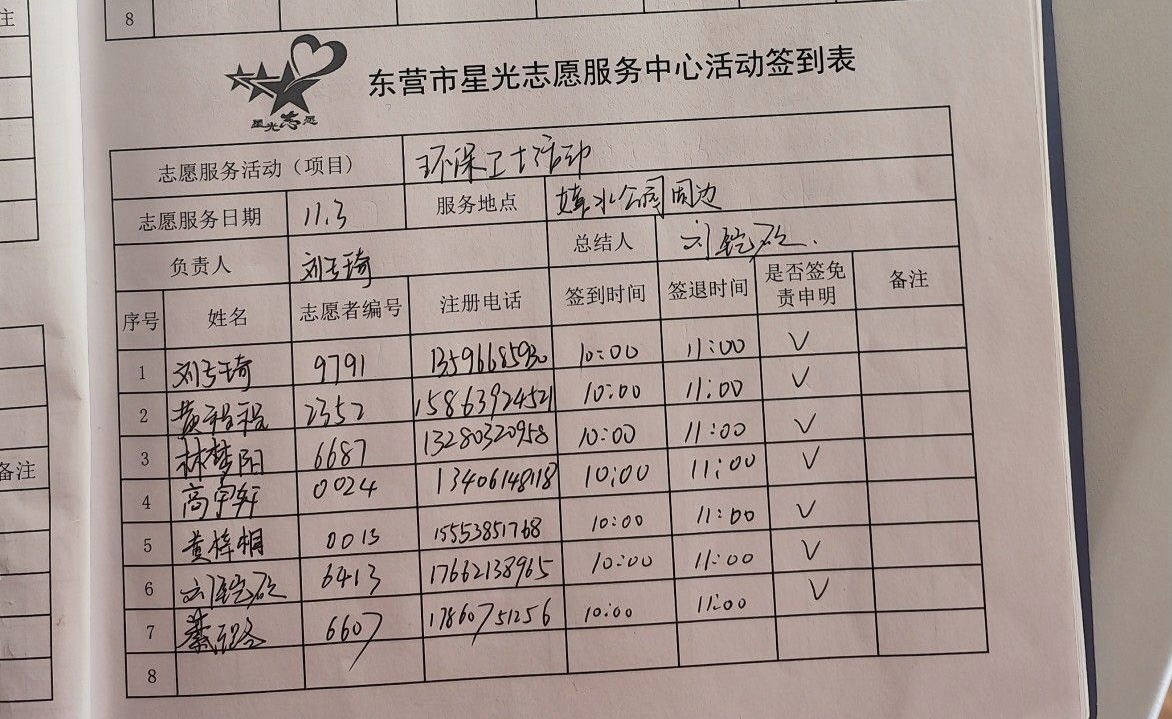 注
8
星光志愿
东营市星光志愿服务中心活动签到表
志愿服务活动（项目） 环保卫士活动
志愿服务日期 11.3 服务地点 公园周边
负责人 刘 琦 总结人 刘
序号 姓名 志愿者编号 注册电话 签到时间 签退时间 是否签免责申明 备注
1 刘 琦 9791 13596685930 10:00 11:00 √
2 黄程程 2352 15863924521 10:00 11:00 √
3 林梦阳 6687 13280320958 10:00 11:00 √
4 高宇轩 0024 13406148118 10:00 11:00 √
5 黄梓桐 0015 15553851768 10:00 11:00 √
6 刘 6413 17662138965 10:00 11:00 √
7 6607 17860751256 10:00 11:00 √
8
备注